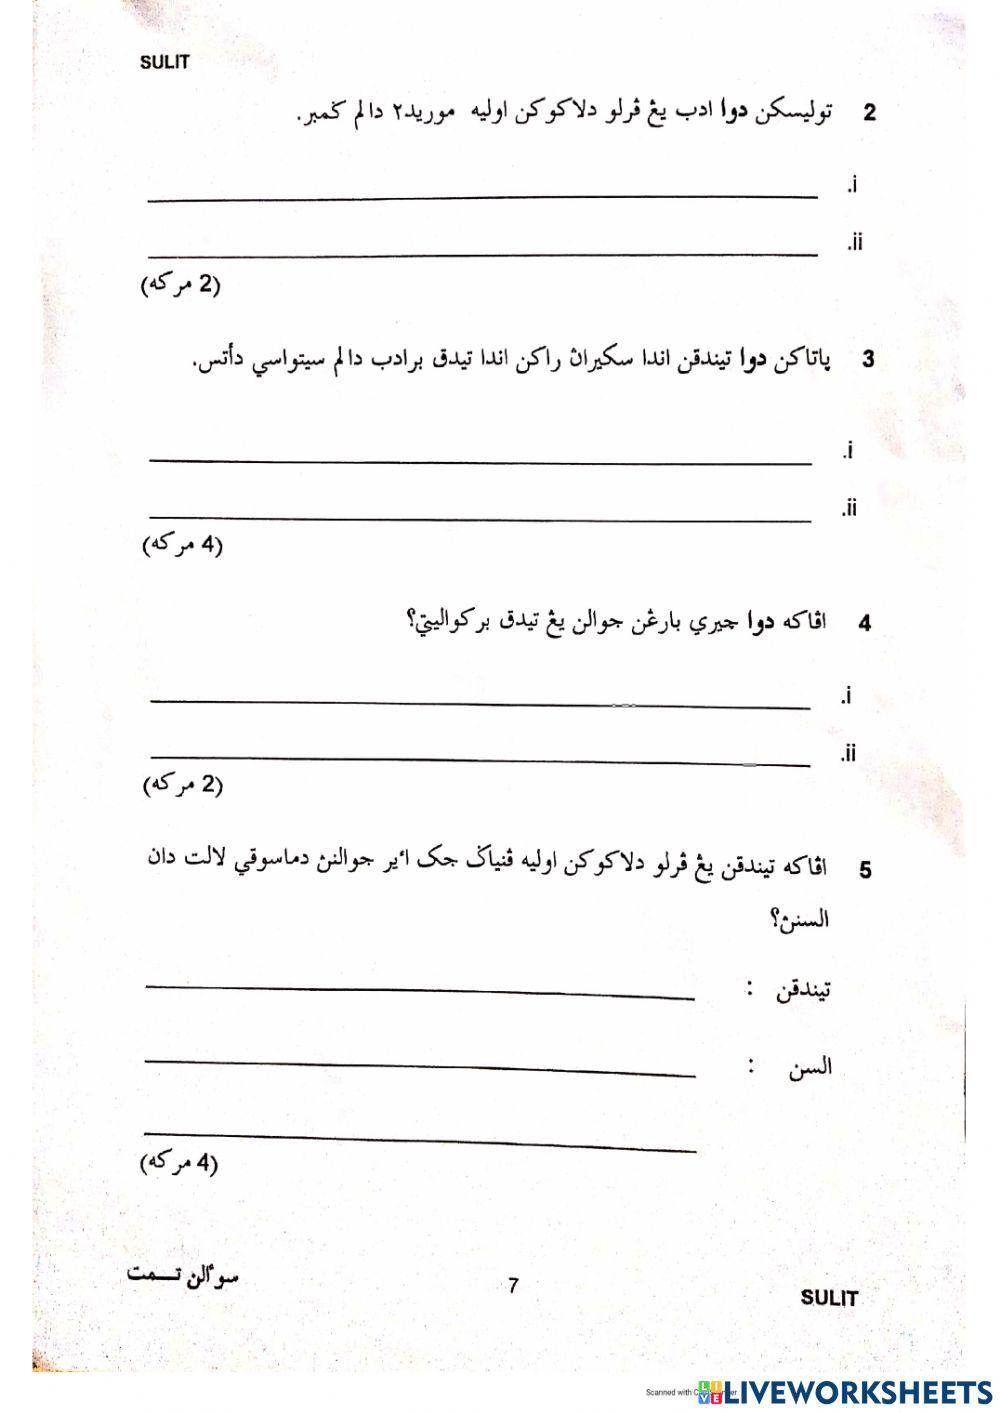 SULIT
2 توليسکن دوا ادب يڠ ڤرلو دلاکوکن اوليه موريد٢ دالم ݢمبر.
i.
ii.
(2 مرکه)
3 ڽاتاکن دوا تيندقن اندا سکيراڽ راکن اندا تيدق برادب دالم سيتواسي دأتس.
i.
ii.
(4 مرکه)
4 اڤاکه دوا چيري بارڠن جوالن يڠ تيدق برکواليتي؟
i.
ii.
(2 مرکه)
5 اڤاکه تيندقن يڠ ڤرلو دلاکوکن اوليه ڤنياݢ جک اءير جوالنڽ دماسوقي لالت دان
السنڽ؟
تيندقن :
السن :
(4 مرکه)
سوءالن تــمت
7
SULIT
Scanned with
LIVEWORKSHEETS